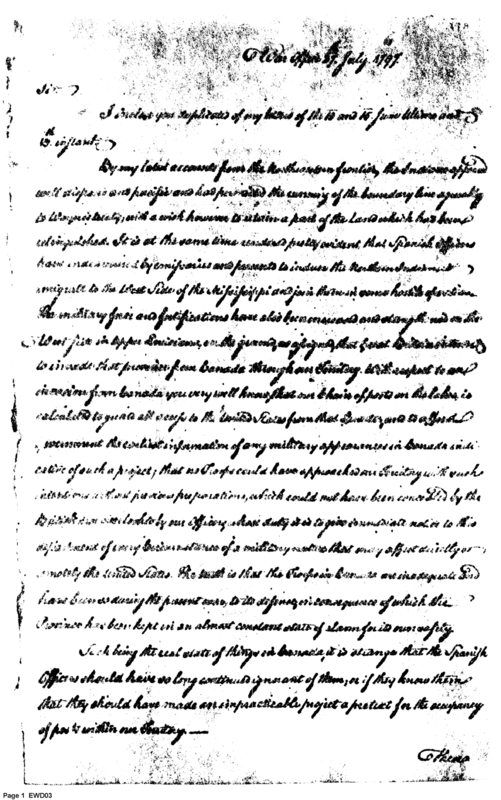 War Office 27. July 1797
Sir
I enclose you duplicates of my letters of the and June Ultimo and
instant.
By my latest accounts from the Northwestern frontier, the Indians appeared
well disposed and pacific and had permitted the running of the boundary line agreeably
to Waynes treaty, with a wish however to retain a part of the Land which had been
relinquished. It is at the same time rendered pretty evident that Spanish officers
have endeavoured by emissaries and presents to induce the Northern Indians to
emigrate to the West Side of the Mississippi and join them in some hostile operation
The military force and fortifications have also been increased and strengthened on the
West side in Upper Louisiana, on the ground, as assigned, that Great Britain intends
to invade that province from Canada through our Territory. With respect to an
invasion from Canada you very well know, that our Chain of posts on the lakes, is
calculated to guard all access to the United States from that Quarter, and to afford
government the earliest information of any military appearances in Canada indi-
cative of such a project; that no Troops could have approached our Territory with such
intentions without previous preparations, which could not have been concealed by the
British nor overlooked by our Officers, whose duty it is to give immediate notice to this
department of every Circumstance of a military nature that may affect directly or
remotely the United States. The truth is that the Troops in Canada are inadequate and
have been so during the present war, to its defence, in consequence of which the
Province has been kept in an almost constant state of alarm for its own safety.
Such being the real state of things in Canada, it is strange that the Spanish
Officers should have so long continued ignorant of them, or if they knew them
that they should have made an impracticable project a pretext for the occupancy
of posts within our Territory.—
These
Page 1 EWD03